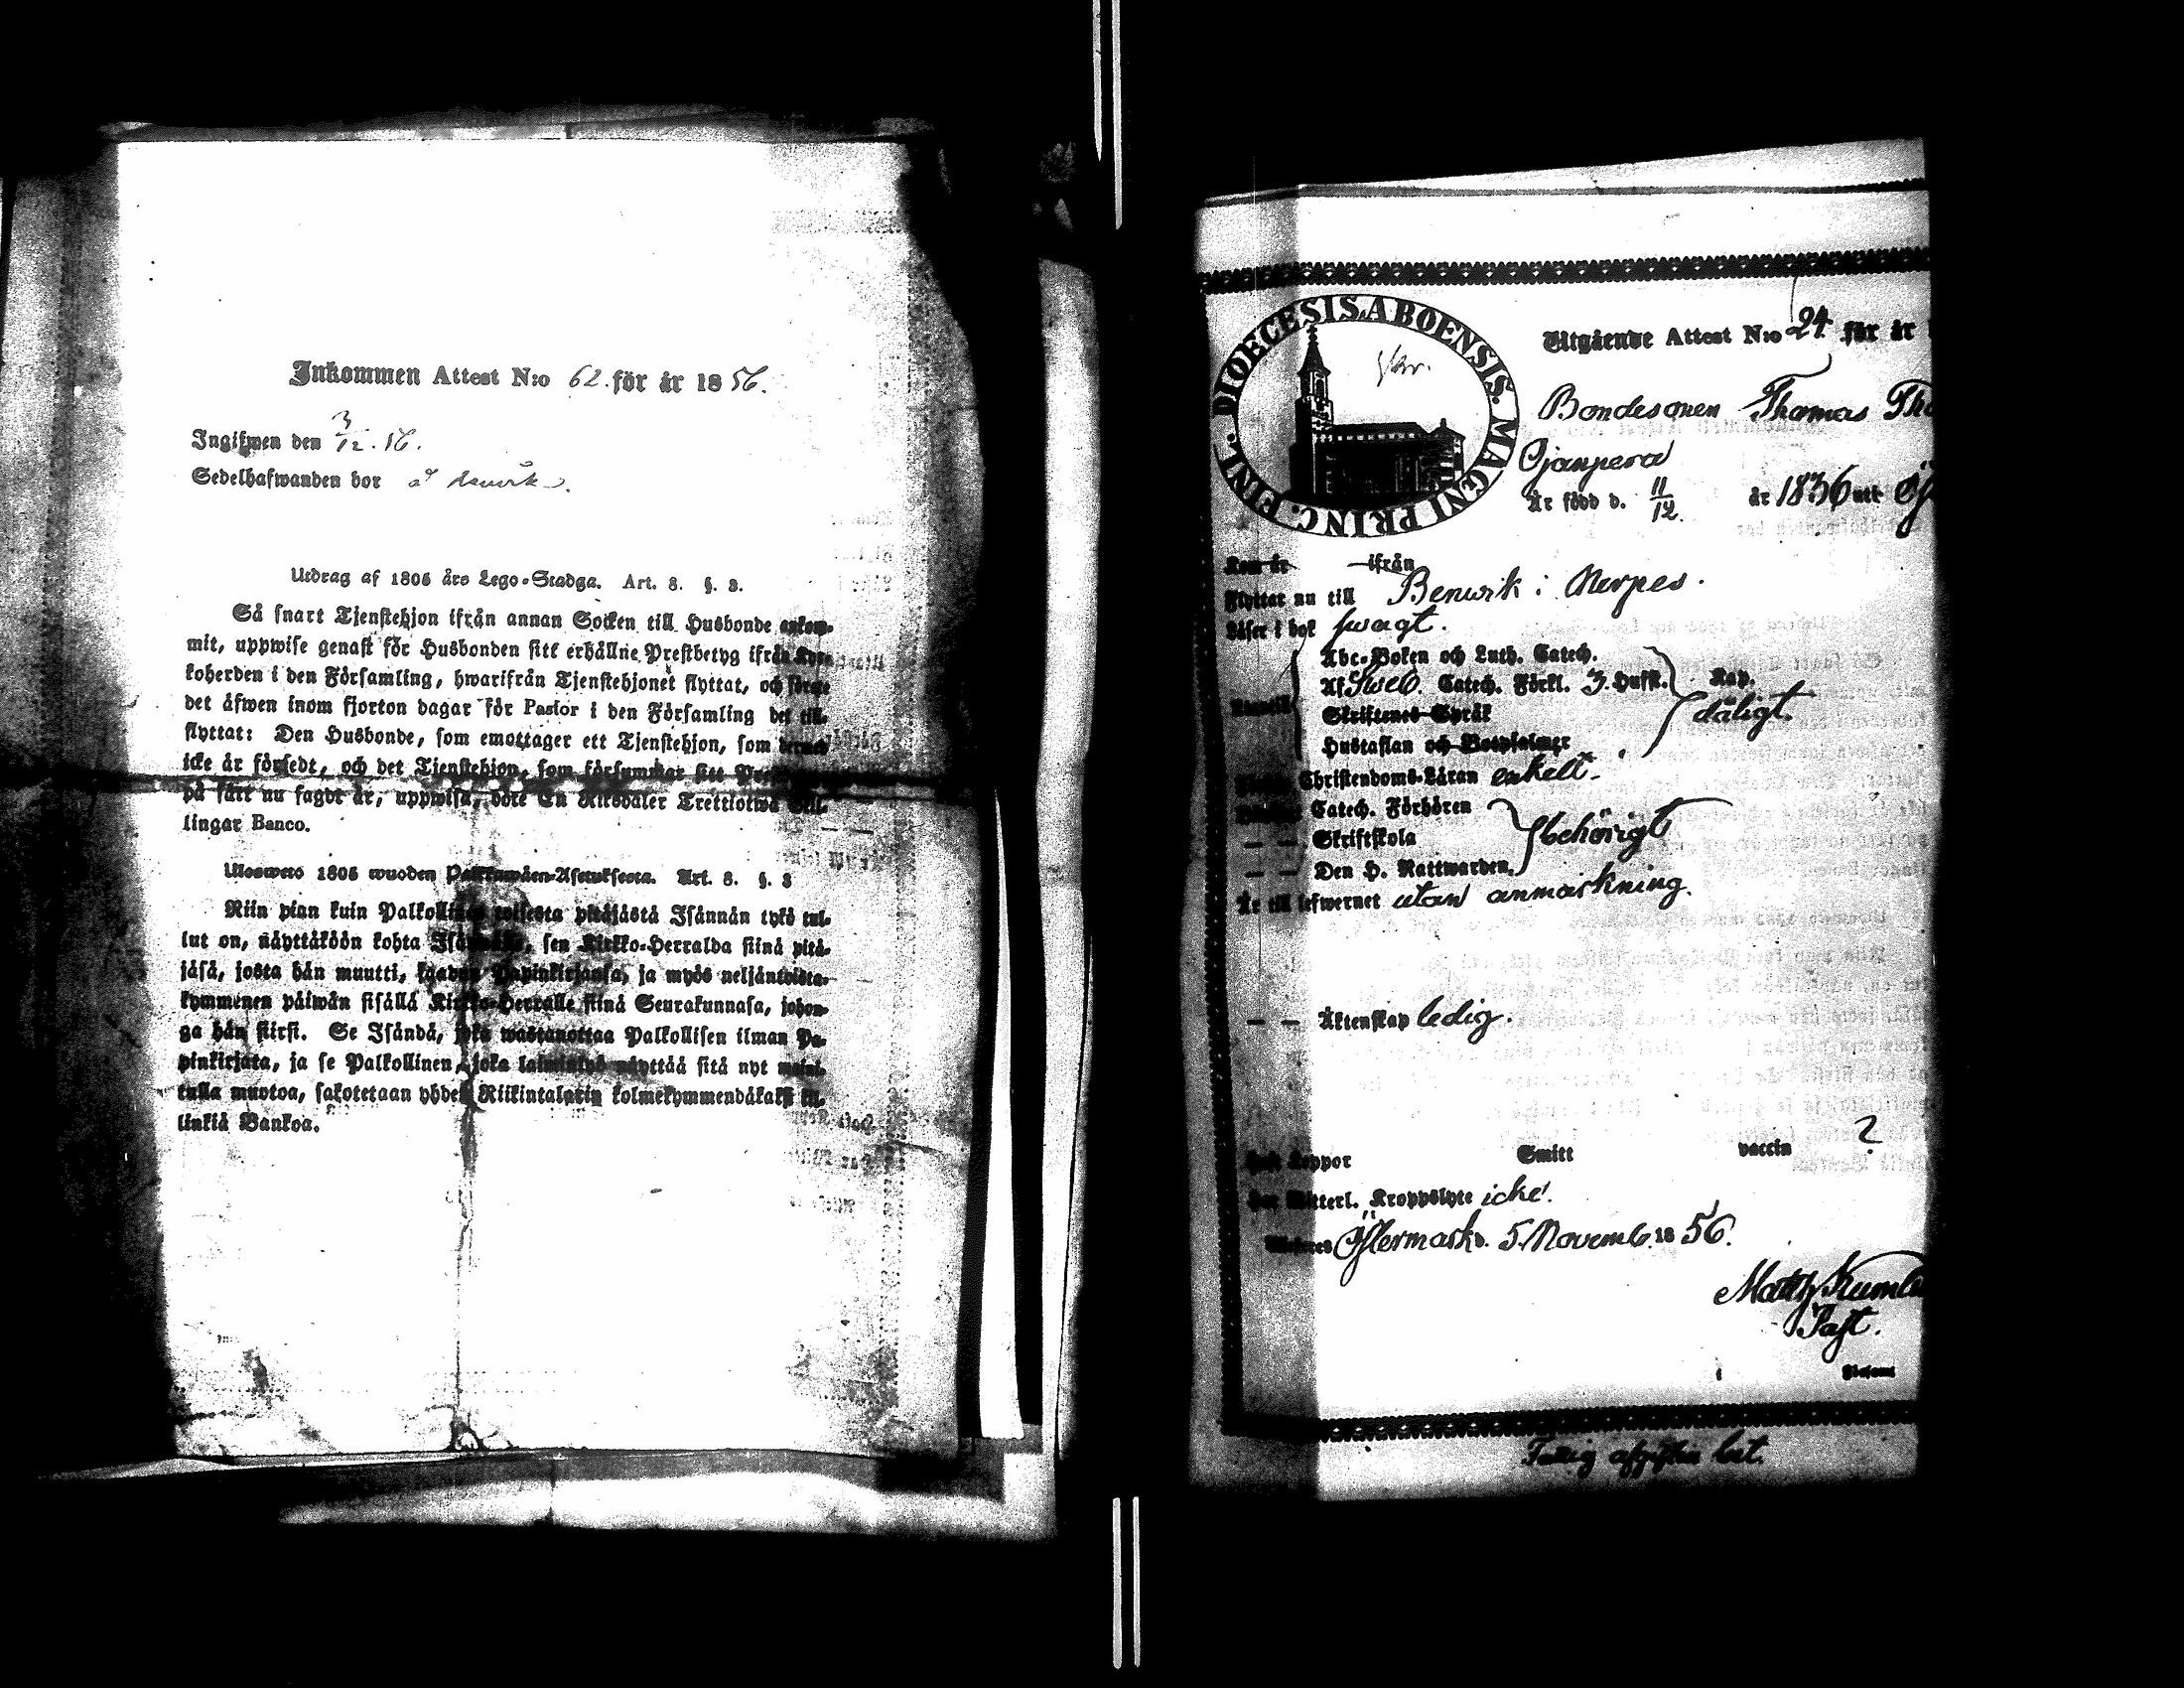 Inkommen Attest N:o 62. för år 1856.
Ingifwen den 3/12. 56.
Sedelhafwanden bor
Utdrag af 1805 års Lego-Stadga. Art. 8. §. 3.
Så snart Tjenstehjon ifrån annan Socken till Husbonde ankom-
mit, uppwise genast för Husbonden sitt erhållne Prestbetyg ifrån Kyr-
koherden i den Församling, hwarifrån Tjenstehjonet flyttat, och förete
det äfwen inom fjorton dagar för Pastor i den Församling det till-
flyttat: Den Husbonde, som emottager ett Tjenstehjon, som dermed
icke är försedt, och det Tjenstehjon, som försummar sitt
på sätt nu sagdt är, uppwisa, böte En Riksdaler Trettiotwå Skil-
lingar Banco.
Uloswető 1805 wuoden Palkkawäen-Asetuksesta. Art. 8. §. 3
Niin pian kuin Palkollinen toisesta pitäjästä Isännän tykö tul-
lut on, näyttäköön kohta sen Kirkko-Herralda siinä pitä-
jäsä, josta hän muutti, saadun Papinkirjansa, ja myös neljäntoista-
kymmenen päiwän sisällä Kirkko-Herralle siinä Seurakunnasa, johon-
ga hän siirsi. Se Isändä, joka wastanottaa Palkollisen ilman Pa-
pinkirjata, ja se Palkollinen, joka laiminlyö näyttää sitä nyt maini-
tulla muotoa, sakotetaan yhden Riikintalarin kolmekymmendäkaksi kil-
linkiä Bankoa.
DIOECESIS ABOENSIS. MAGNI PRINC. FINL.
Utgående Attest N:o 24. för år
Bondesonen Thomas Tho
Ojanpera
Är född d. 11/12. år 1836 uti
Kom år ifrån
Flyttar nu till Benwik i Nerpes.
Läser i bok swagt.
Abc-Boken och Luth. Catech.
Af Sweb. Catech. Förkl. 3. Hufst. Kap.
Skriftenes Språk
dåligt.
Hustaflan och Botpsalmer
Christendoms-Läran enkelt.
Catech. Förhören
— — Skriftskola
behörigt
— — Den H. Nattwarden,
Är till lefwernet utan anmärkning.
— — Äktenskap ledig.
Haft Koppor Smitt vaccin ?
Har Witterl. Kroppslyte icke.
Östermark d. 5. Novemb. 1856.
Matth
Past.